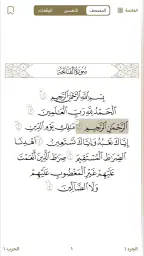 الفاتحة المصحف التفسير الوقفات
سورة الفاتحة
بسم الله الرحمن الرحيم ١
الحمد لله رب العالمين ٢
الرحمن الرحيم ٣ مالك يوم الدين ٤
إياك نعبد وإياك نستعين ٥ اهدنا
الصراط المستقيم ٦ صراط الذين أنعمت
عليهم غير المغضوب عليهم
ولا الضالين ٧
الجزء ١ ١ الحزب ١